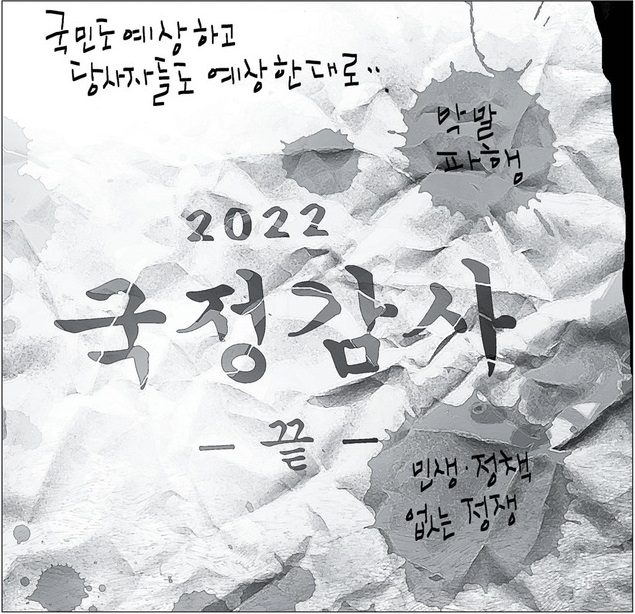 국민도 예상하고
당사자들도 예상한대로..
막말
파행
2022
국정감사
- 끝 -
민생·정책
없는 정쟁